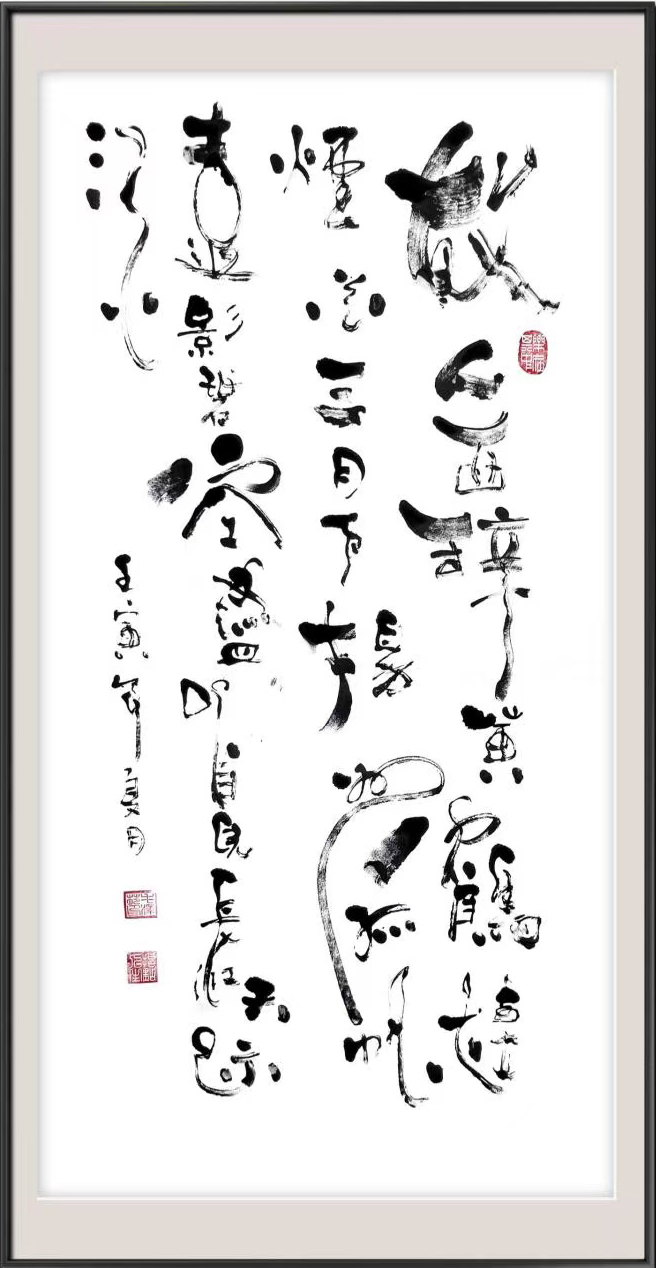 故人西辭黃鶴樓
煙花三月下揚州孤帆
遠影碧空盡唯見長江天際
流
壬寅年夏月